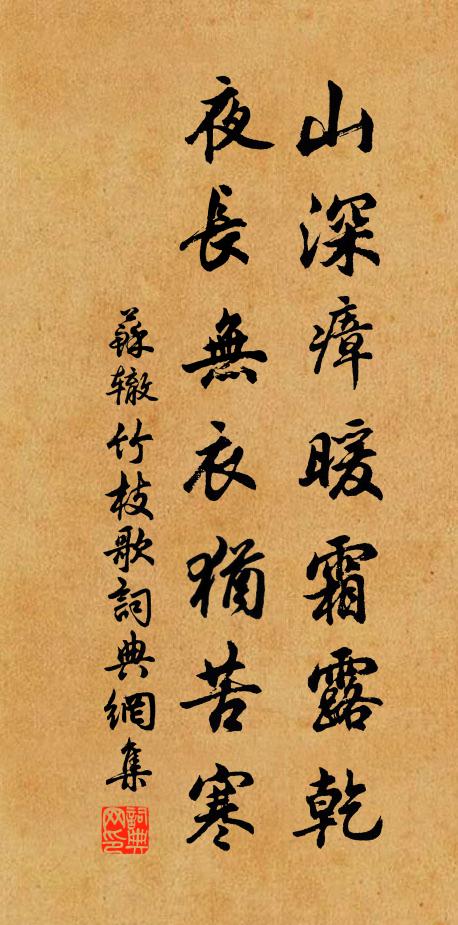 山深瘴暖霜露乾
夜長無衣猶苦寒
蘇辙竹枝歌詞典網集
詞典網印